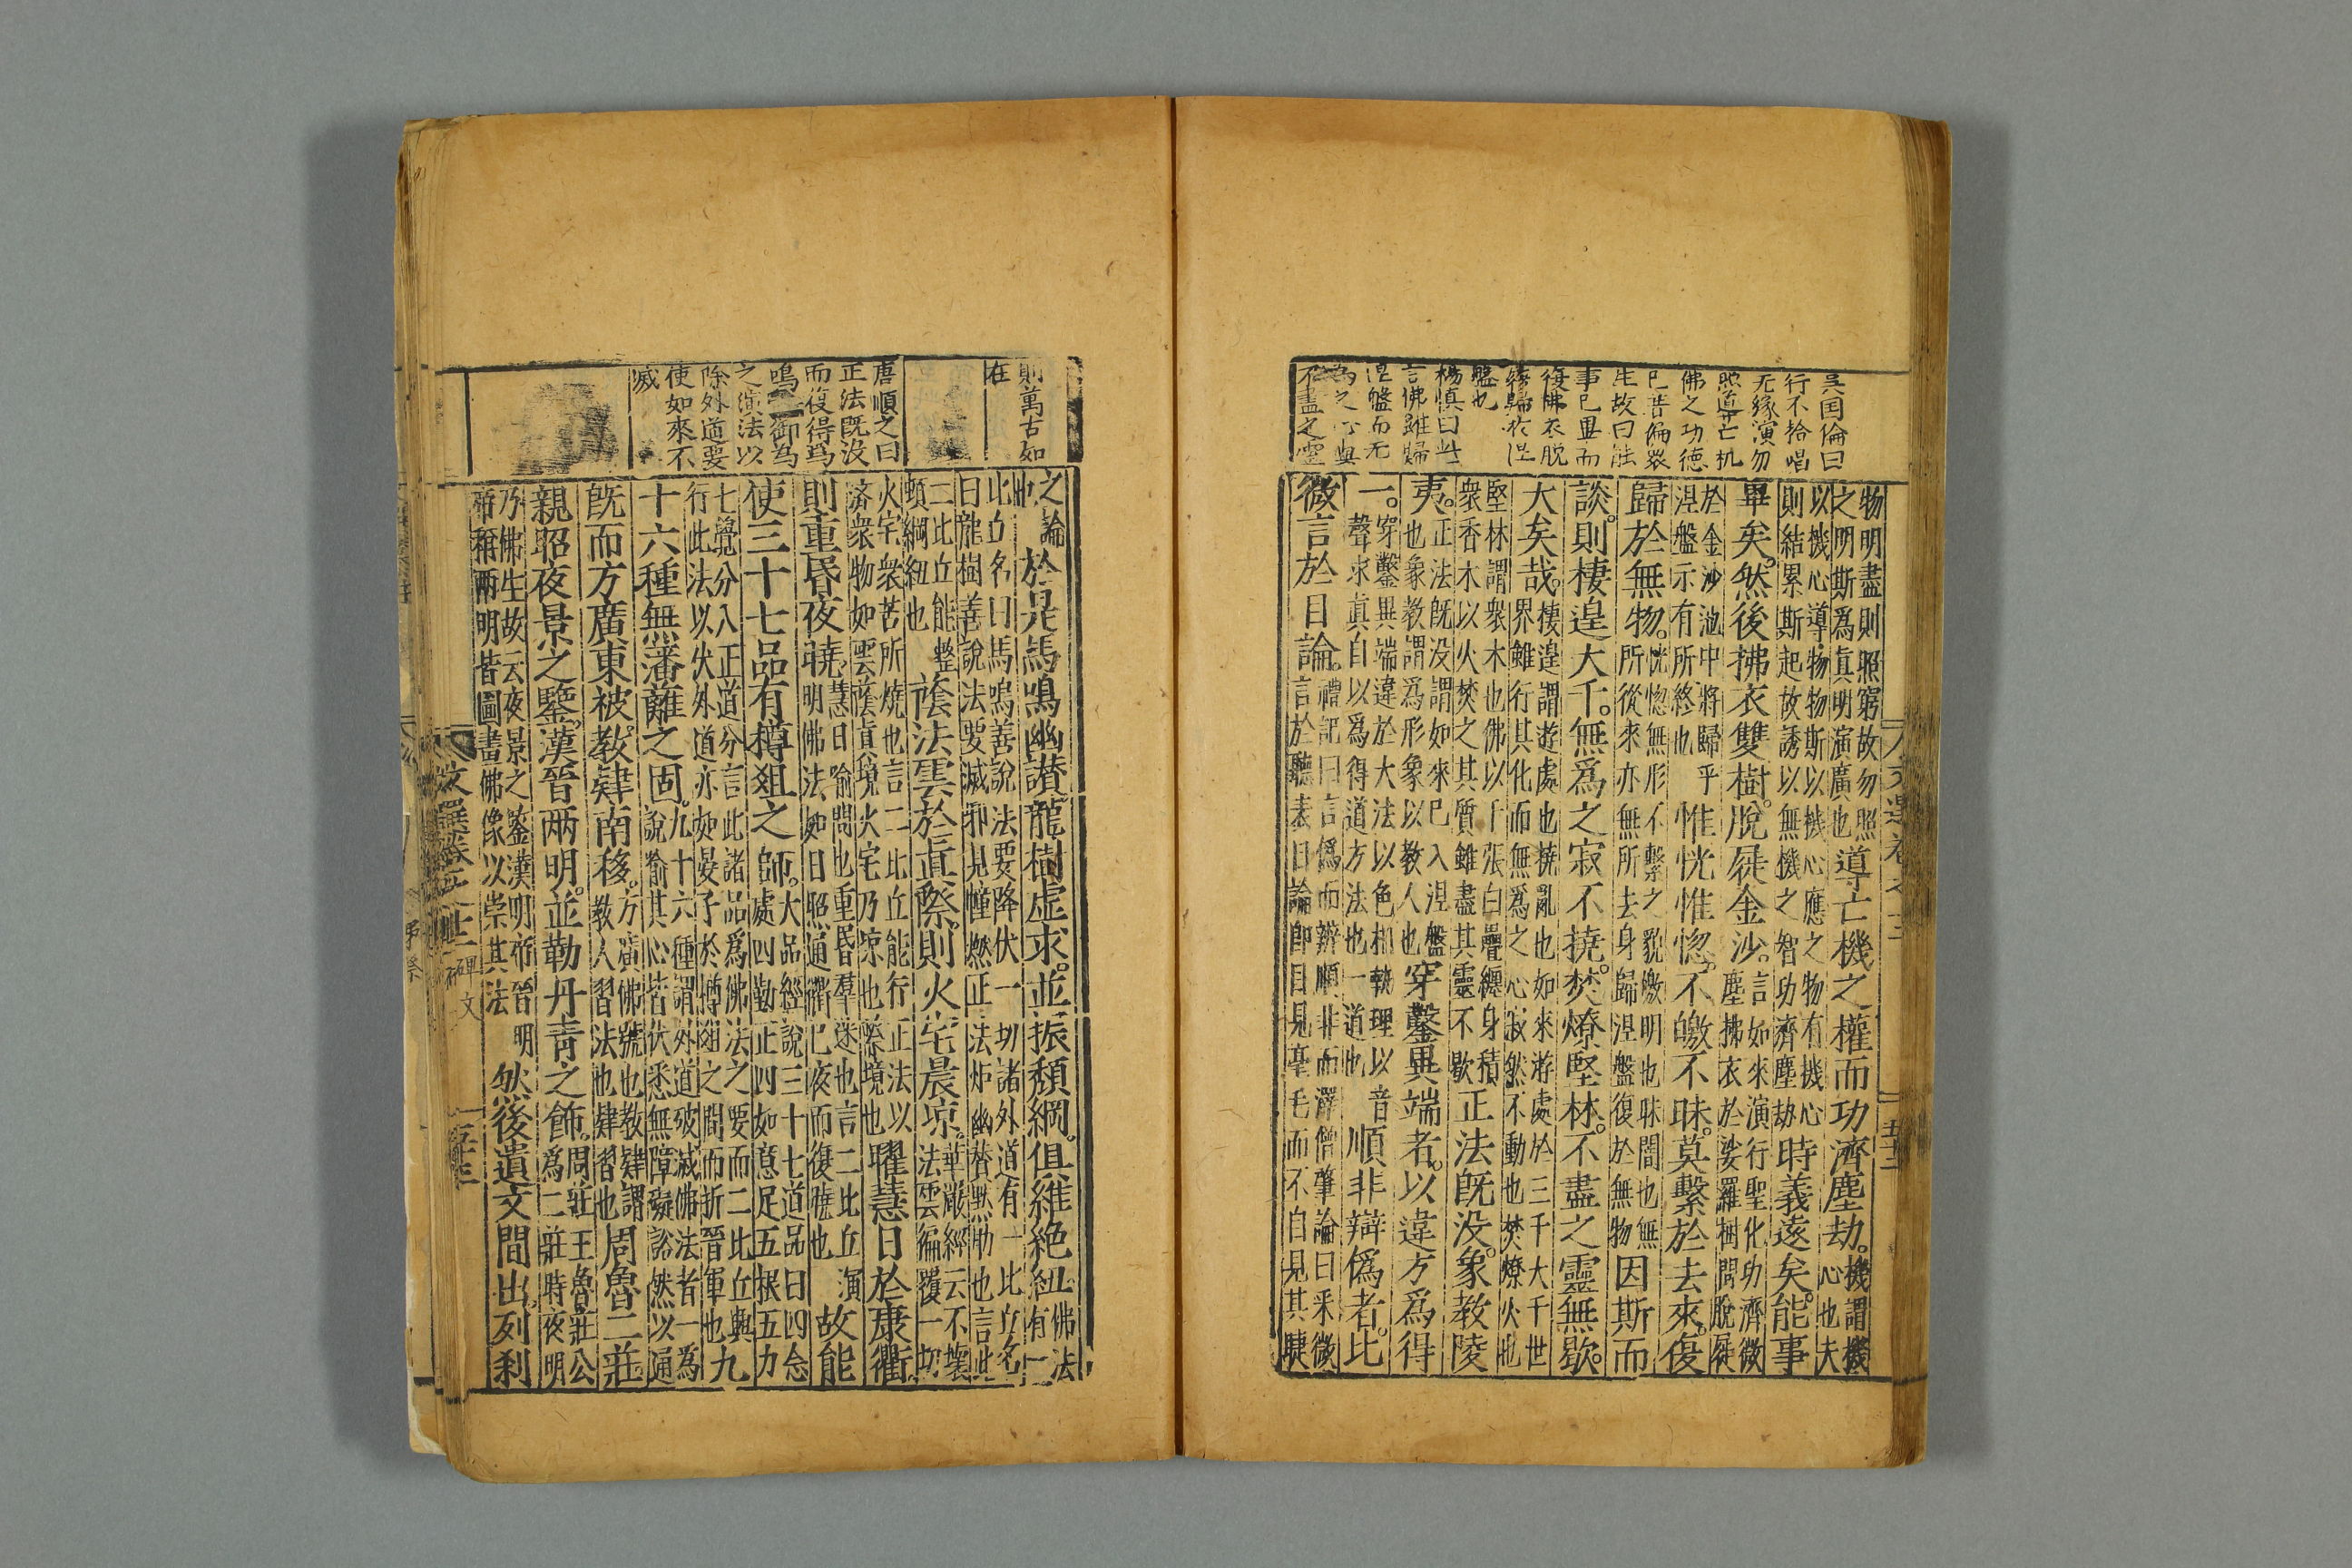 吳囯倫曰
行不捨唱
无緣演勿
照道亡机
佛之功德
巳普徧衆
生故曰能
事巳畢而
復佛衣脫
盤也
楊慎曰此
言佛雖歸
涅盤而无
不盡之靈
物明盡則照窮故勿照
之明斯爲真明演廣也
導亡機之權而功濟塵劫
機謂機
心也夫
以機心導物物斯以機心應之物有機心
則結累斯起故誘以無機之智功濟塵劫
時義遠矣能事
畢矣然後拂衣雙樹脫屣金沙
言如來演行聖化功濟微
塵拂衣於娑羅樹間脫屣
於金沙池中將歸乎
涅盤示有所終也
惟恍惟惚不皦不昧莫繫於去來復
歸於無物
恍惚無形不繫之貌皦明也昧闇也無
所從來亦無所去身歸涅盤復於無物
因斯而
談則棲遑大千無爲之寂不撓焚燎堅林不盡之靈無歇
大矣哉
棲遑謂遊處也撓亂也如來游處於三千大千世
界雖行其化而無爲之心寂然不動也焚燎火也
堅林謂衆木也佛以千張白疊纏身積
衆香木以火焚之其質雖盡其靈不歇
正法既没象教陵
夷
正法既没謂如來已入涅盤
也象教謂爲形象以教人也
穿鑿異端者以違方爲得
一
穿鑿異端違於大法以色相執理以音
聲求真自以爲得道方法也一道也
順非辯僞者比
微言於日論
禮記曰言僞而辨順非而澤僧肇論曰釆微
言於聽表日論卽目見毫毛而不自見其睫
則萬古如
在
唐順之曰
正法旣没
而復得馬
鳴二御爲
之演法以
除外道要
使如來不
滅
之論
也
於是馬鳴幽讃龍樹虛求並振頹綱俱維絶紐
佛法
有一
比丘名曰馬鳴善説法要降伏一切諸外道有一比丘名
曰龍樹善說法要滅邪見幢燃正法炬幽賛黙助也言此
二比丘能整
頹綱紐也
蔭法雲於眞際則火宅晨凉
華嚴經云不壞
法雲徧覆一切
火宅衆苦所燒也言二比丘能行正法以
済衆物如雲蔭眞境火宅乃凉也際境也
曜慧日於康衢
則重昏夜曉
慧日喻問也重昏羣迷也言二比丘演
明佛法如日照通衢已夜而復曉也
故能
使三十七品有樽俎之師
大品經說三十七道品曰四念
處四勤正四如意足五根五力
七覺分入正道分言此諸品爲佛法之要而二比丘與九
行此法以伏外道亦如晏子於樽俎之間而折晉軍也
十六種無藩籬之固
九十六種謂外道破滅佛法者一爲
說喻其心皆伏悉無障礙谽然以通
旣而方廣東被教肄南移
方廣佛號也教肄謂
教人習法也肄習也
周魯二莊
親昭夜景之鑒漢晉兩明並勒丹靑之飾
周莊王魯莊公
爲二莊時夜明
乃佛生故云夜景之鍳漢明帝晉明
帝稱兩明皆圖畫佛像以崇其法
然後遺文間出列刹